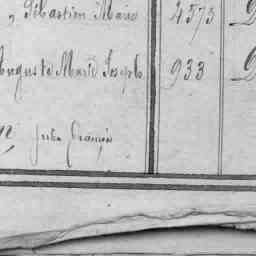 , Sébastien Marie 4573
Auguste Marie Joseph 933
Jules François